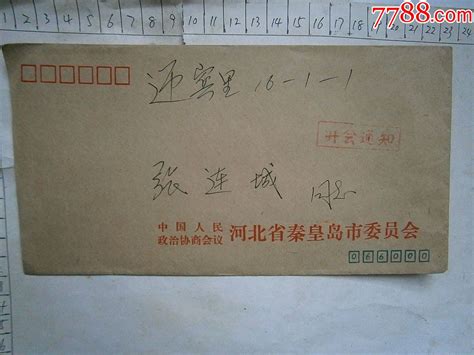 7788.com
1 2 3 4 5 6 7 8 9 10 11 12 13 14 15 16 17 18
迎宾里 16-1-1
开会通知
张连城 同志
中国人民
政治协商会议 河北省秦皇岛市委员会
066000